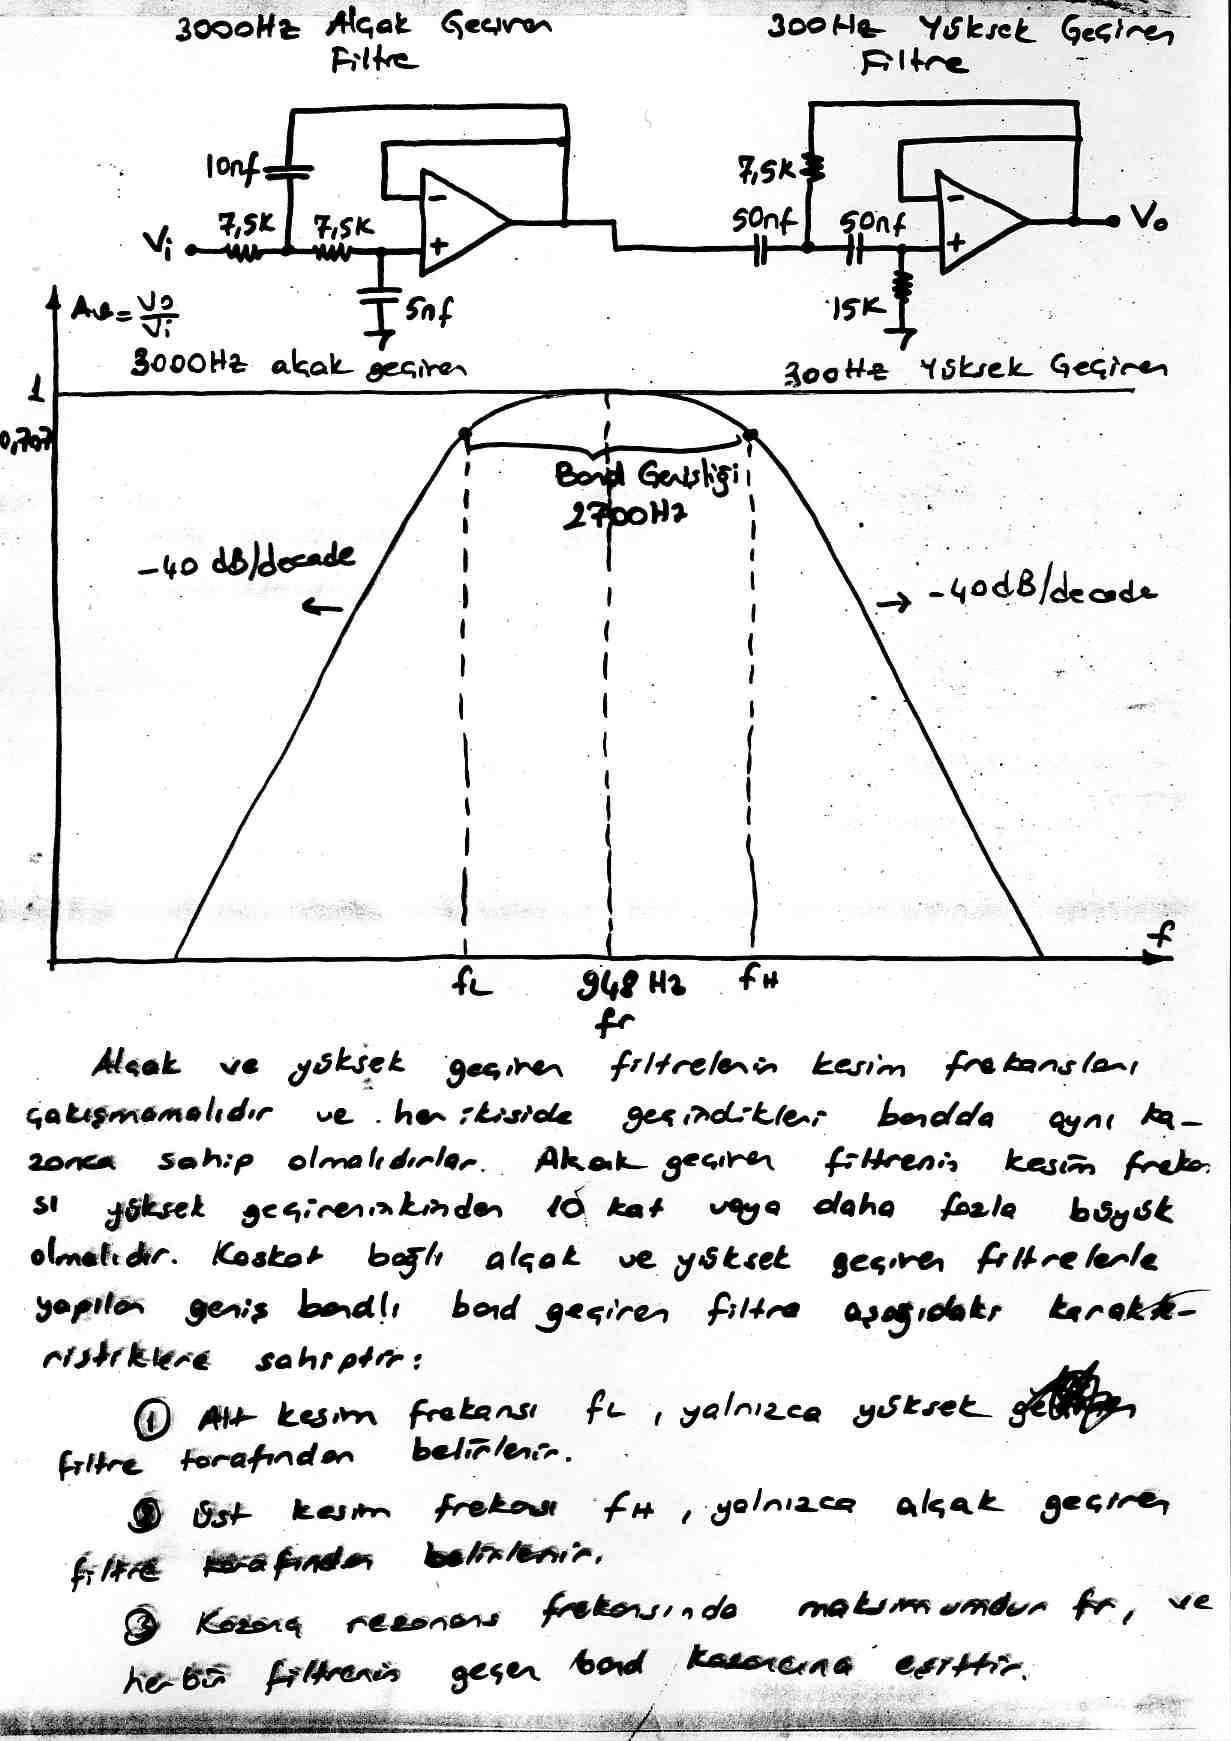 3000Hz Alçak Geçiren
Filtre
300Hz Yüksek Geçiren
Filtre
10nf
7,5K
7,5K
Vi
-
+
5nf
7,5K
50nf
50nf
-
+
15K
Vo
Av = Vo/Vi
3000Hz alçak geçiren
300Hz Yüksek Geçiren
1
0,707
Band Genişliği
2700Hz
-40 dB/decade
-40dB/decade
f
fL
948 Hz
fH
fr
Alçak ve yüksek geçiren filtrelerin kesim frekansları
çakışmamalıdır ve her ikiside geçirdikleri bandda aynı ka-
zanca sahip olmalıdırlar. Alçak geçiren filtrenin kesim frekan
sı yüksek geçireninkinden 10 kat veya daha fazla büyük
olmalıdır. Kaskat bağlı alçak ve yüksek geçiren filtrelerle
yapılan geniş bandlı band geçiren filtre aşağıdaki karakte-
ristiklere sahiptir:
1 Alt kesim frekansı fL, yalnızca yüksek
filtre tarafından belirlenir.
2 Üst kesim frekansı fH, yalnızca alçak geçiren
filtre tarafından belirlenir.
3 Kazanç rezonans frekansında maksimumdur fr, ve
herbir filtrenin geçen band kazancına eşittir.